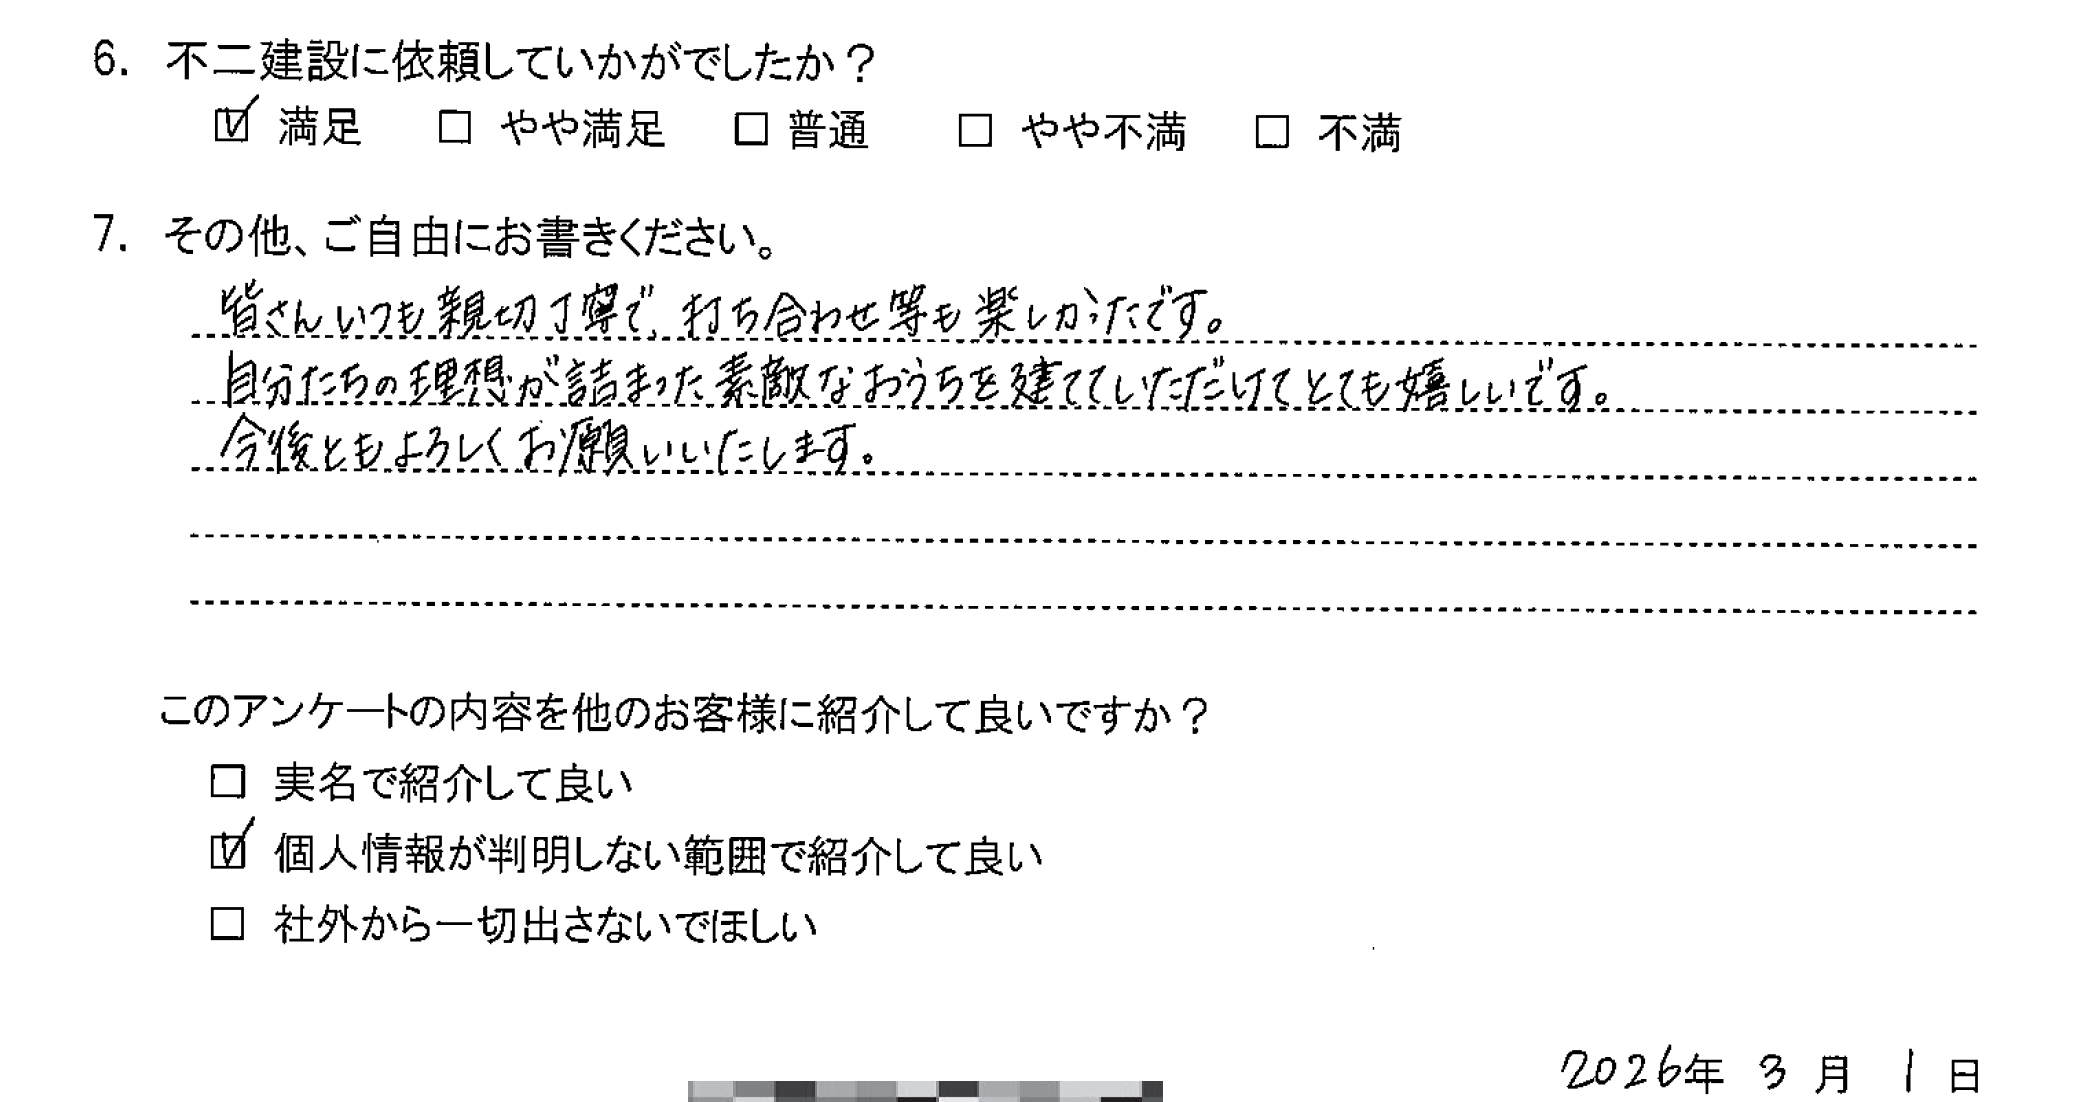 6. 不二建設に依頼していかがでしたか？
☑ 満足 □ やや満足 □ 普通 □ やや不満 □ 不満
7. その他、ご自由にお書きください。
皆さんいつも親切丁寧で、打ち合わせ等も楽しかったです。
自分たちの理想が詰まった素敵なおうちを建てていただけてとても嬉しいです。
今後ともよろしくお願いいたします。
このアンケートの内容を他のお客様に紹介して良いですか？
□ 実名で紹介して良い
☑ 個人情報が判明しない範囲で紹介して良い
□ 社外から一切出さないでほしい
2026年 3月 1日